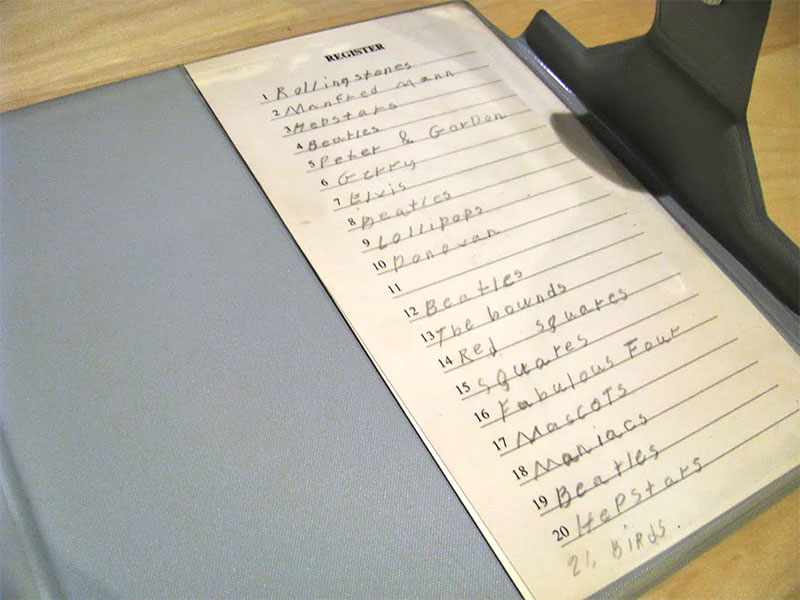 REGISTER
1 Rollingstones
2 Manfred Mann
3 Hepstars
4 Beatles
5 Peter & Gordon
6 Gerry
7 Elvis
8 Beatles
9 Lollipops
10 Donovan
11
12 Beatles
13 The hounds
14 Red squares
15 squares
16 Fabulous Four
17 Mascots
18 Maniacs
19 Beatles
20 Hepstars
21 BiRDS.